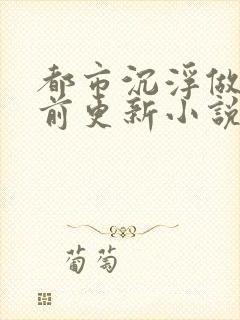 都市沉浮做
前更新小說
葡萄